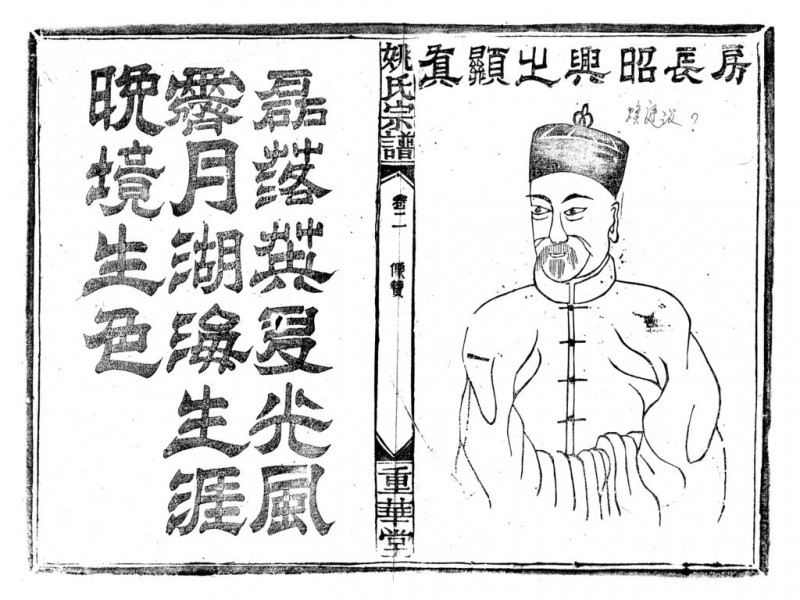 房長昭興之顯眞
姚氏宗譜
卷二
像贊
重華堂
磊落英多光風
霽月湖海生涯
晚境生色